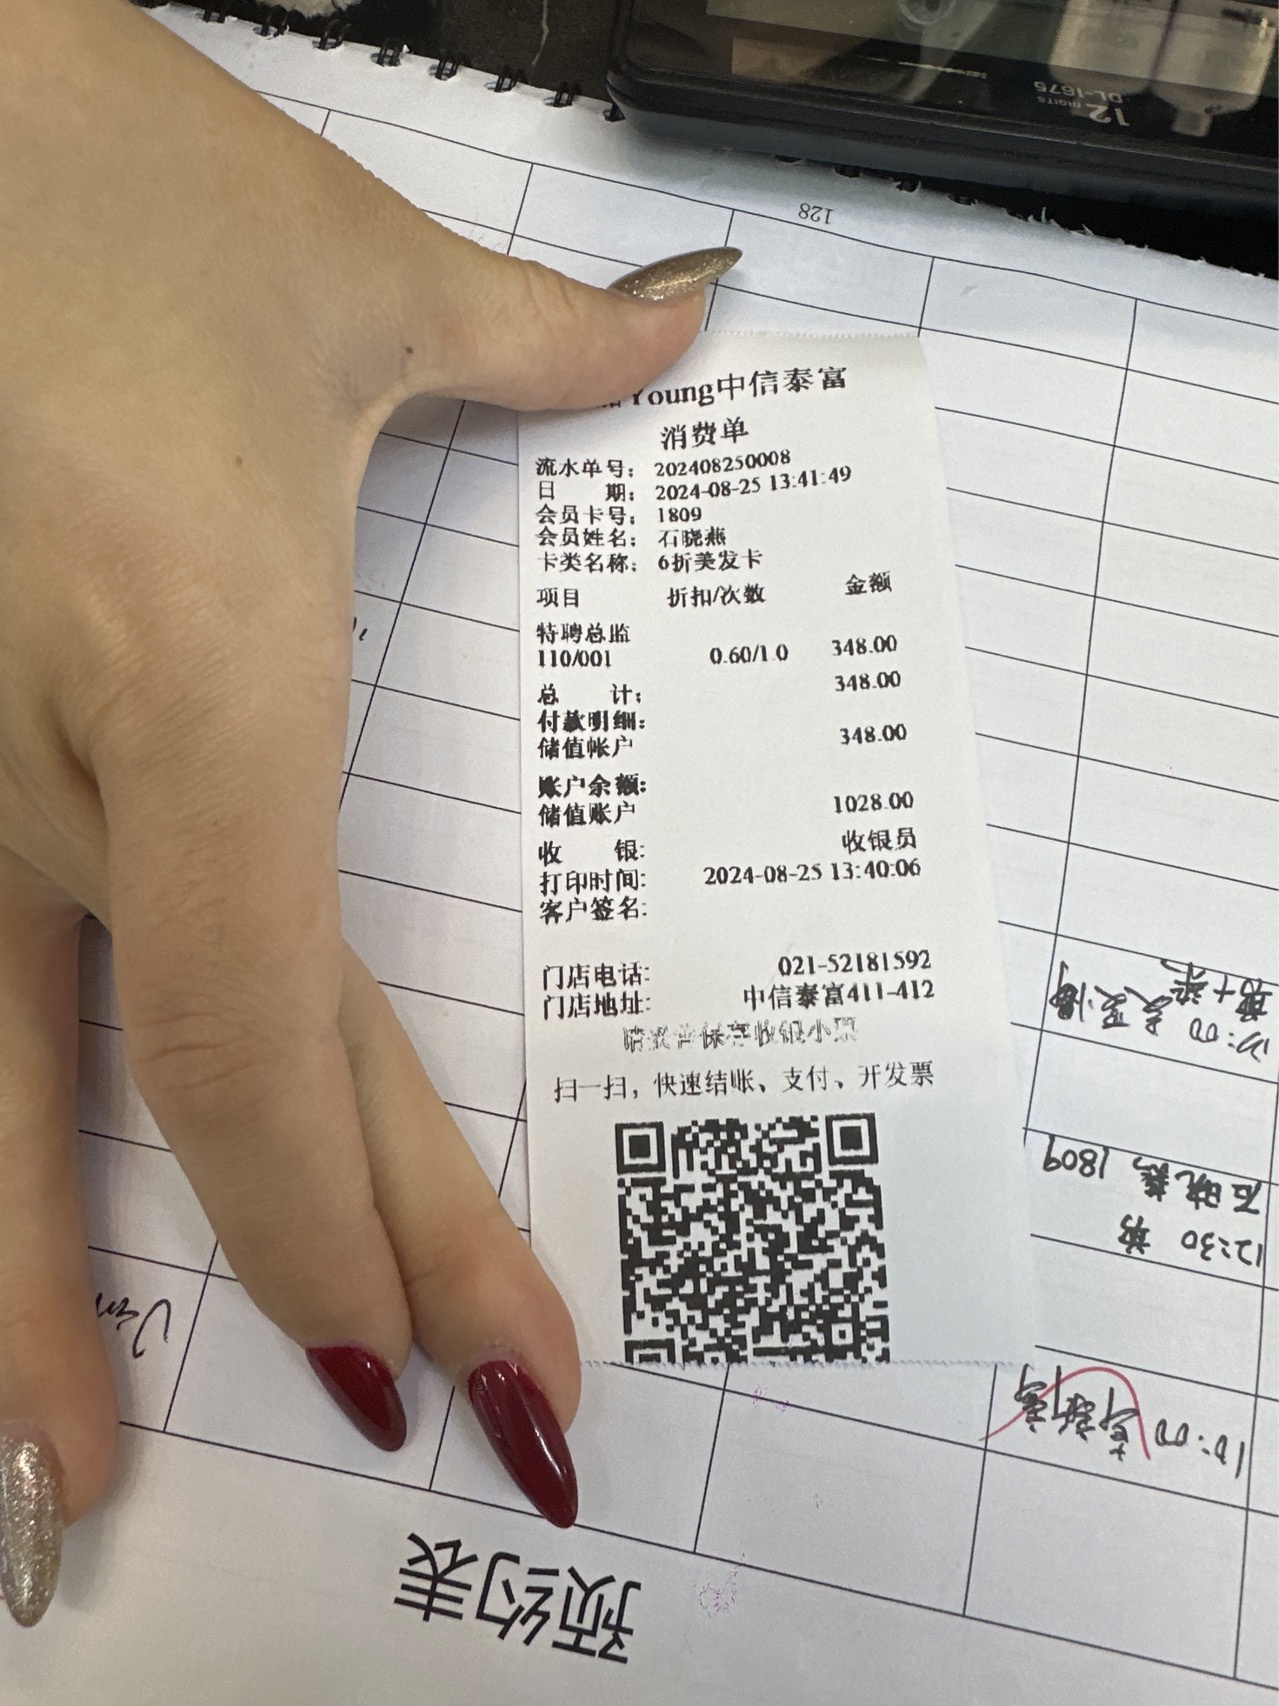 Young中信泰富
消费单
流水单号: 202408250008
日 期: 2024-08-25 13:41:49
会员卡号: 1809
会员姓名: 石晓燕
卡类名称: 6折美发卡
项目 折扣/次数 金额
特聘总监
110/001 0.60/1.0 348.00
总 计: 348.00
付款明细:
储值帐户 348.00
账户余额:
储值账户 1028.00
收 银: 收银员
打印时间: 2024-08-25 13:40:06
客户签名:
门店电话: 021-52181592
门店地址: 中信泰富411-412
请妥善保存收银小票
扫一扫，快速结账、支付、开发票
12 DIGITS
DL-1675
128
预约表
10:00
12:30
石晓燕 1809